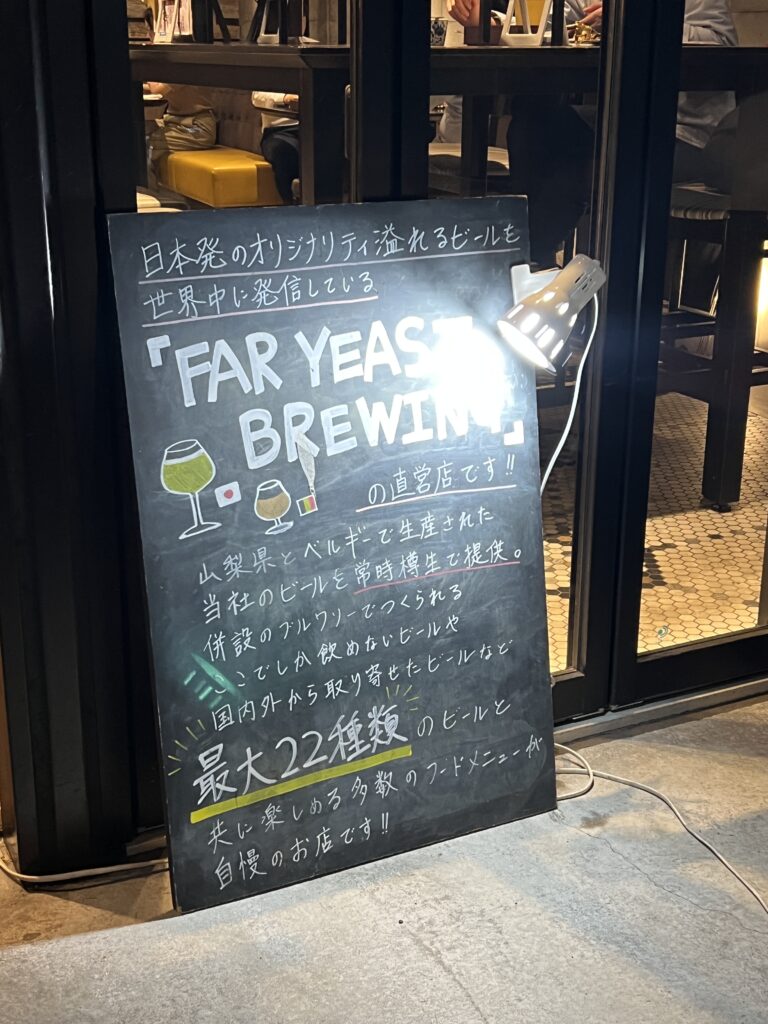 日本発のオリジナリティ溢れるビールを
世界中に発信している
「FAR YEAST
BREWING」
の直営店です!!
山梨県とベルギーで生産された
当社のビールを常時樽生で提供。
併設のブルワリーでつくられる
ここでしか飲めないビールや
国内外から取り寄せたビールなど
最大22種類のビールと
共に楽しめる多数のフードメニューが
自慢のお店です!!